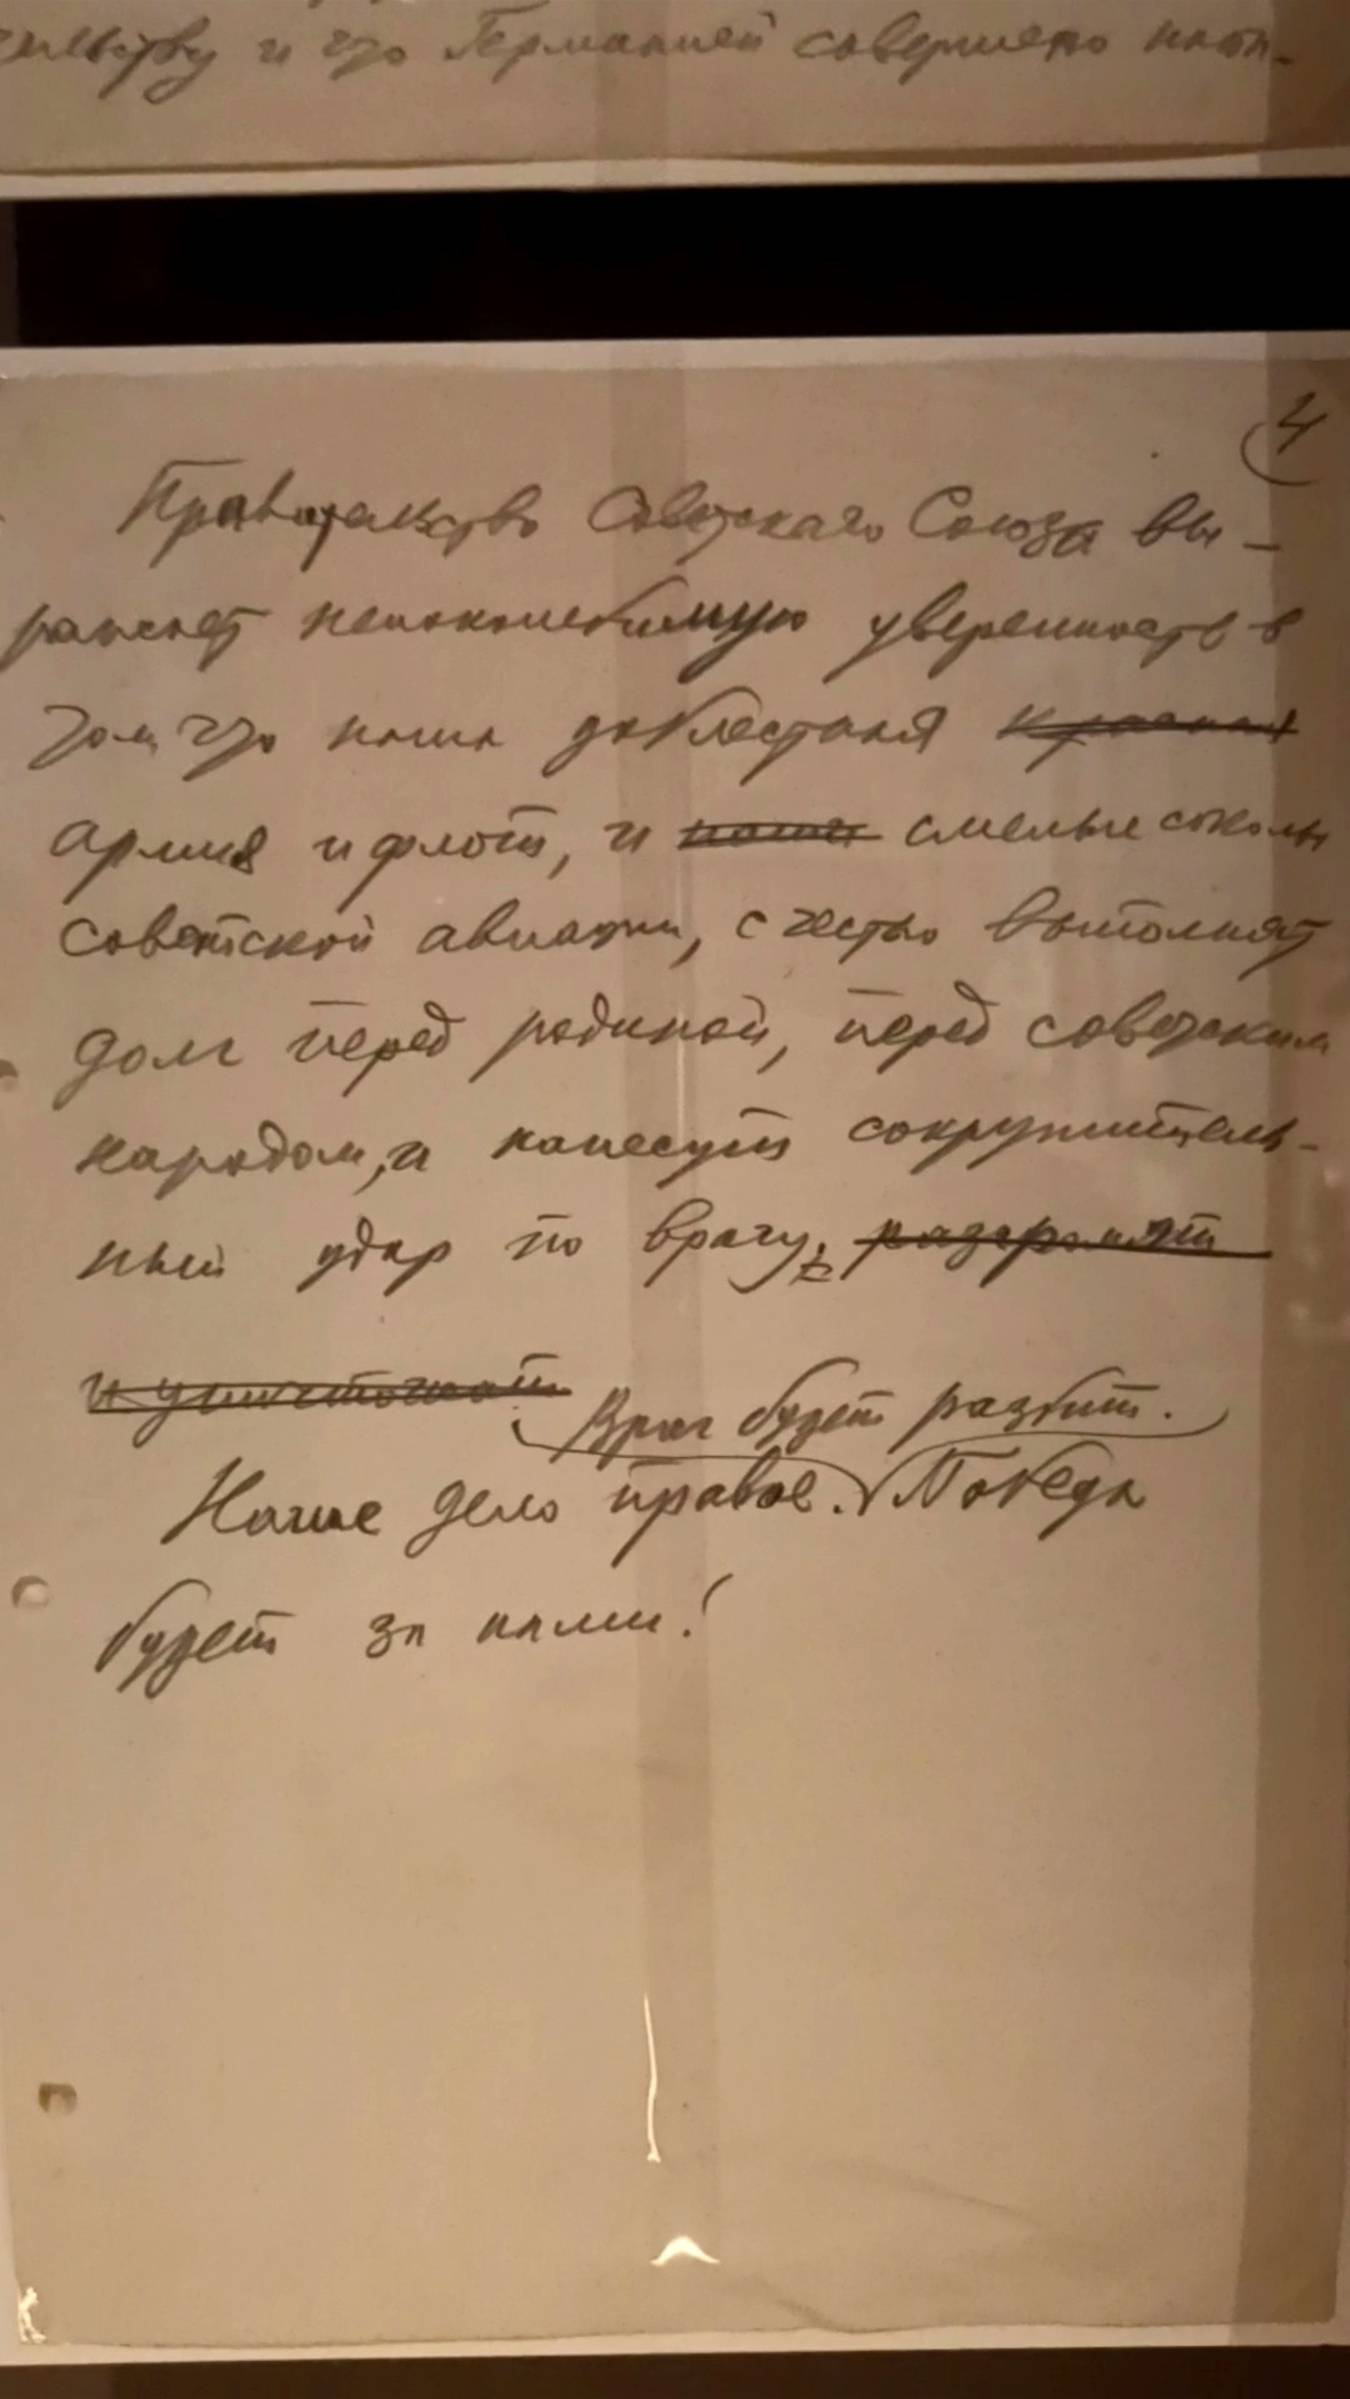 тельству и что Германией совершено напа-
4
Правительство Советского Союза вы-
ражает непоколебимую уверенность в
том, что наша доблестная красная
армия и флот, и наши смелые соколы
советской авиации, с честью выполнят
долг перед родиной, перед советским
народом, и нанесут сокрушитель-
ный удар по врагу, разгромят
и уничтожат
Враг будет разбит.
Наше дело правое. Победа
будет за нами!